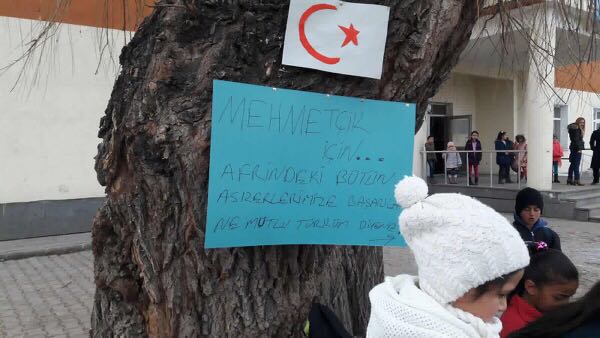 MEHMETÇİK
İÇİN...
AFRİNDEKİ BÜTÜN
ASKERLERİMİZE BAŞARILAR
NE MUTLU TÜRKÜM DİYENE